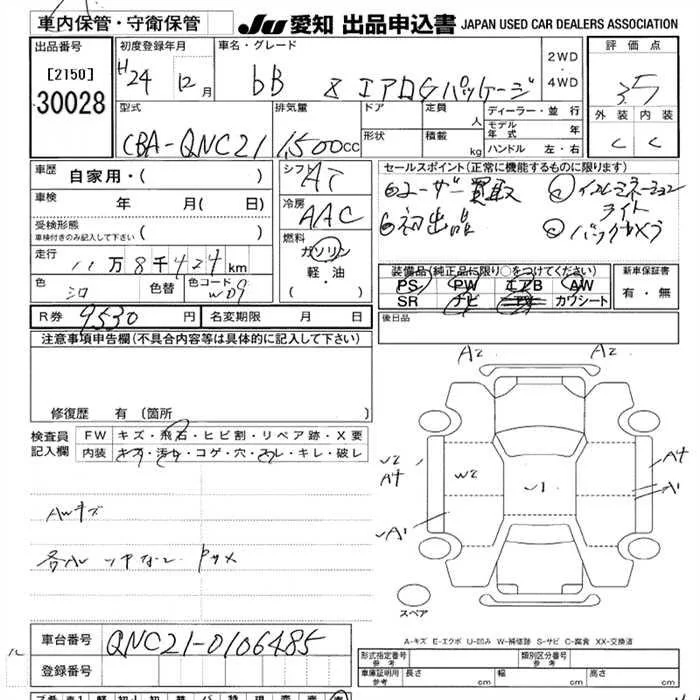 車内保管・守衛保管
JU 愛知 出品申込書 JAPAN USED CAR DEALERS ASSOCIATION
出品番号 初度登録年月 車名・グレード 2WD 評価点
[2150] H24 12月 bB Z エアロGパッケージ 4WD 3.5
30028
型式 排気量 ドア 定員 人 ディーラー・並行 外装 内装
CBA-QNC21 1,500cc モデル年式 年 C C
形状 積載 kg ハンドル 左・右
車歴 自家用・( ) シフト AT セールスポイント(正常に機能するものに限ります)
車検 年 月 ( 日) 冷房 AAC ①ユーザー買取 ③イルミネーションライト
受検形態 ②初出品 ④バックカメラ
車検付きのみ記入して下さい ( ) 燃料 ガソリン
走行 11万8千424km 軽・油
色 シロ 色替 色コード W09 ( ・ )
装備品(純正品に限り○をつけてください) 新車保証書
PS PW エアB AW 有・無
SR ナビ カワシート
R券 9530円 名変期限 月 日 後日品
注意事項申告欄(不具合内容等は具体的に記入して下さい)
修復歴 有(箇所
検査員記入欄 FW キズ・飛石・ヒビ割・リペア跡・X要
内装 キズ・汚れ・コゲ・穴・スレ・キレ・破レ
A2 A2
W2 A4 W2 U1 A4
A1 A1
AWキズ
スペア
A-キズ E-エクボ U-凹み W-補修跡 S-サビ C-腐食 XX-交換済
車台番号 QNC21-0106485
登録番号
形式指定番号 参考 類別区分番号 参考
車庫証明用 参考 長さ cm 幅 cm 高さ cm